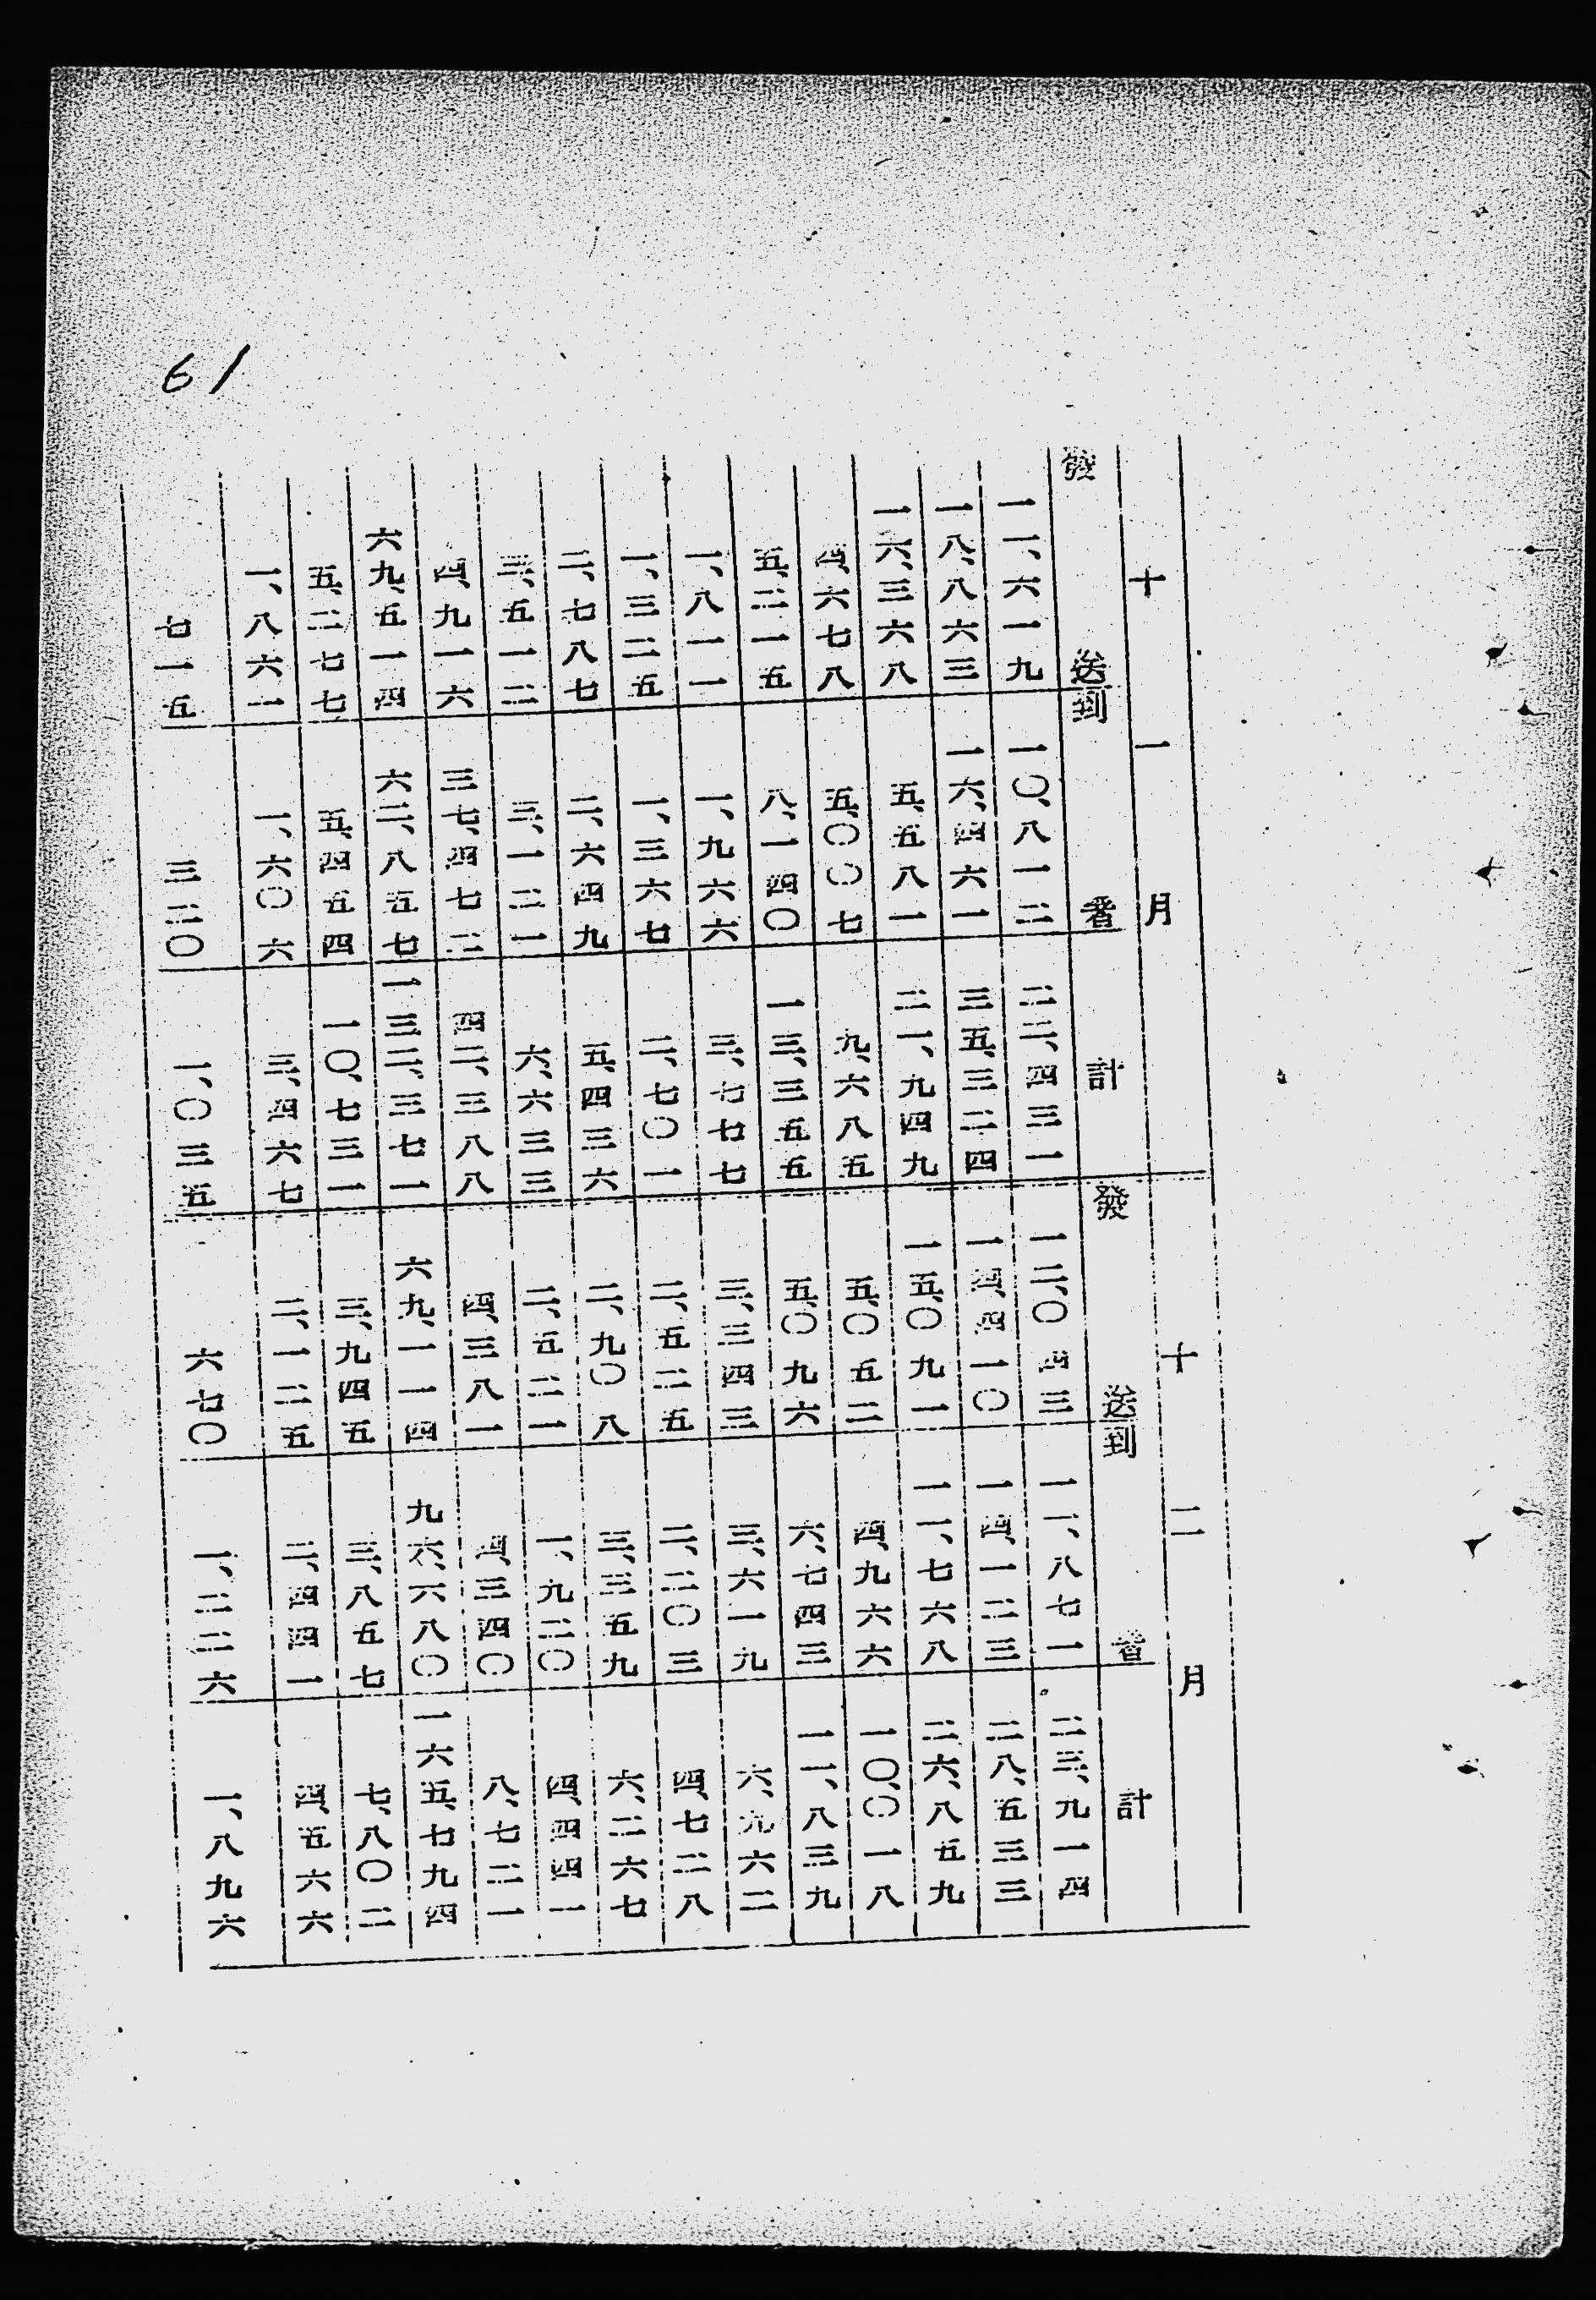 十一月 十二月
發送 到着 計 發送 到着 計
一一、六一九 一〇、八一二 二二、四三一 一二、〇四三 一一、八七一 二三、九一四
一八、八六三 一六、四六一 三五、三二四 一四、四一〇 一四、一二三 二八、五三三
一六、三六八 五、五八一 二一、九四九 一五、〇九一 一一、七六八 二六、八五九
四、六七八 五、〇〇七 九、六八五 五、〇五二 四、九六六 一〇、〇一八
五、二一五 八、一四〇 一三、三五五 五、〇九六 六、七四三 一一、八三九
一、八一一 一、九六六 三、七七七 三、三四三 三、六一九 六、九六二
一、三二五 一、三六七 二、七〇一 二、五二五 二、二〇三 四、七二八
二、七八七 二、六四九 五、四三六 二、九〇八 三、三五九 六、二六七
三、五一二 三、一二一 六、六三三 二、五二一 一、九二〇 四、四四一
四、九一六 三七、四七二 四二、三八八 四、三八一 四、三四〇 八、七二一
六九、五一四 六二、八五七 一三二、三七一 六九、一一四 九六、六八〇 一六五、七九四
五、二七七 五、四五四 一〇、七三一 三、九四五 三、八五七 七、八〇二
一、八六一 一、六〇六 三、四六七 二、一二五 二、四四一 四、五六六
七一五 三二〇 一、〇三五 六七〇 一、二二六 一、八九六
61